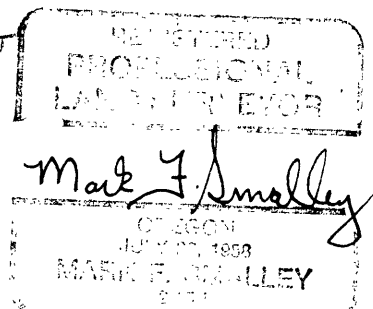 REGISTERED
PROFESSIONAL
LAND SURVEYOR
Mark F. Smalley
OREGON
1988
MARK F. SMALLEY